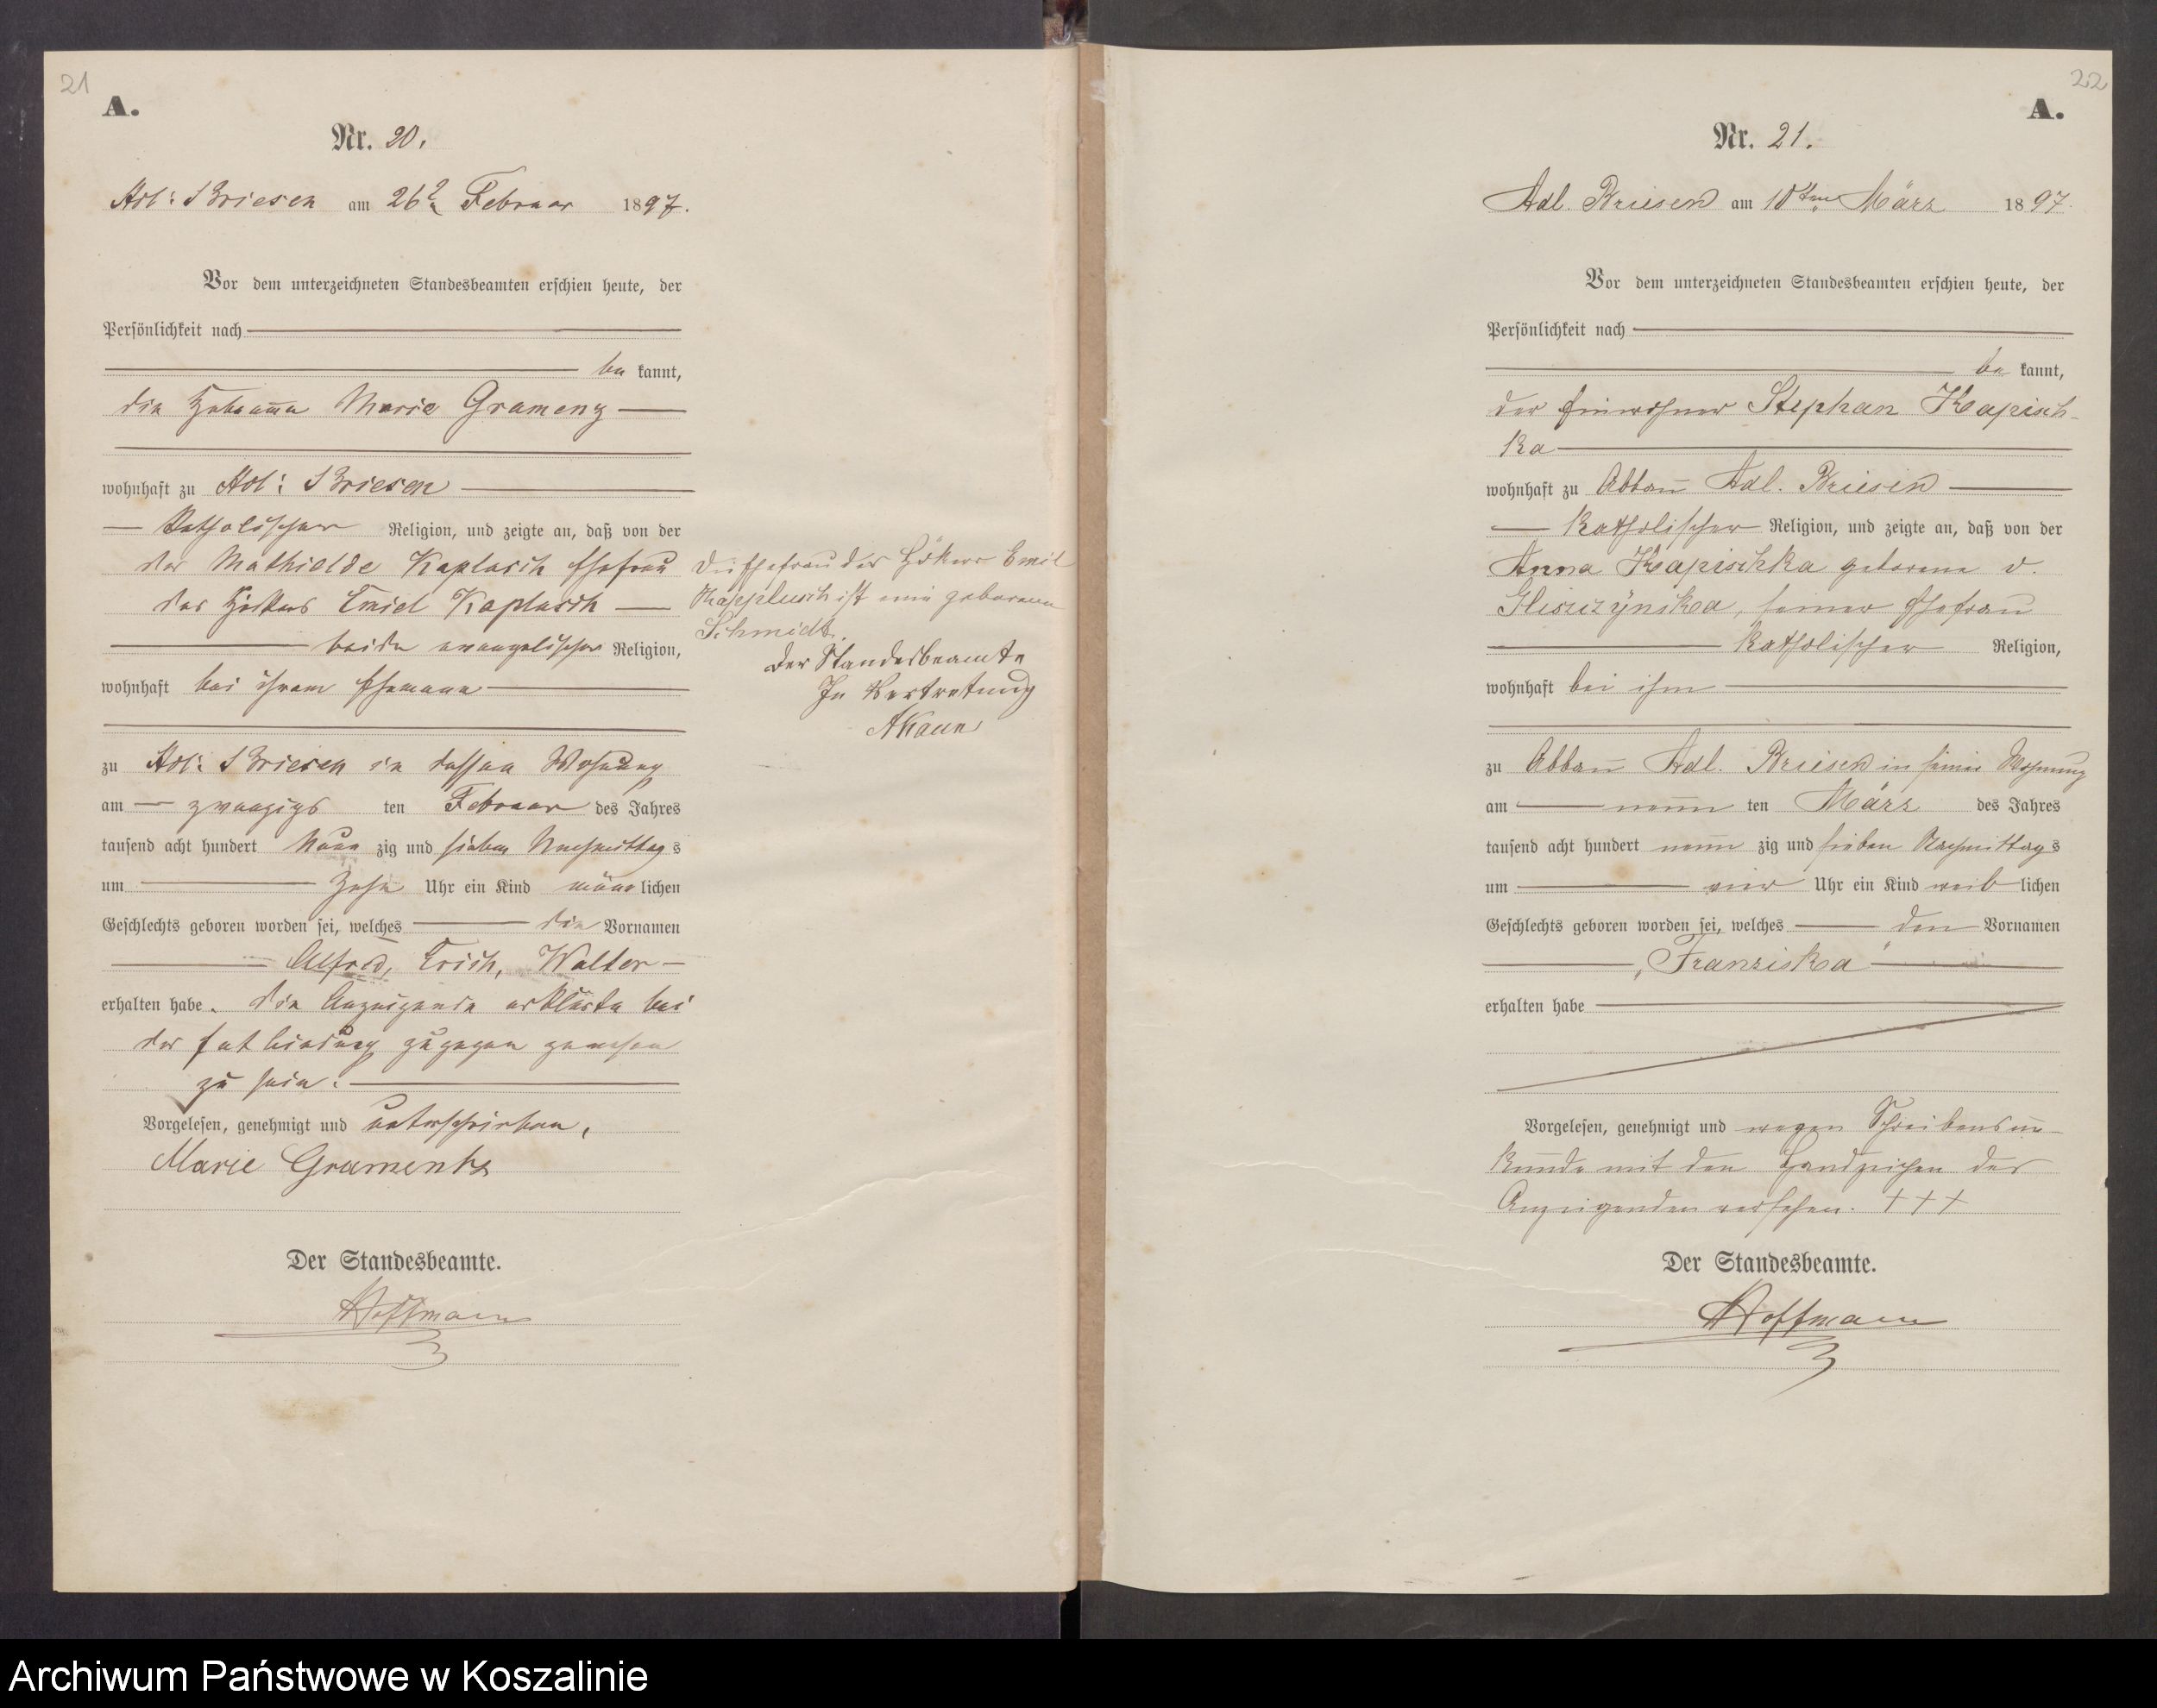 21
A.
Nr. 20.
Adl: Briesen am 26ᵗᵉⁿ Februar 1897.
Vor dem unterzeichneten Standesbeamten erschien heute, der
Persönlichkeit nach
be kannt,
die Hebamme Marie Gramenz
wohnhaft zu Adl: Briesen
katholischer Religion, und zeigte an, daß von der
der Mathielde Kaplusch Ehefrau
des Hökers Emiel Kaplusch
beide evangelischer Religion,
wohnhaft bei ihrem Ehemann
zu Adl: Briesen in dessen Wohnung
am zwanzigs ten Februar des Jahres
tausend acht hundert Neun zig und sieben Nachmittag s
um Zehn Uhr ein Kind männ lichen
Geschlechts geboren worden sei, welches die Vornamen
Alfred, Erich, Walter
erhalten habe. Die Anzeigende erklärte bei
der Entbindung zugegen gewesen
zu sein.
Vorgelesen, genehmigt und unterschrieben,
Marie Gramentz
Der Standesbeamte.
Hoffmann
Die Ehefrau des Hökers Emil
Kapplusch ist eine geborene
Schmidt.
Der Standesbeamte
In Vertretung
AKaun
22
A.
Nr. 21.
Adl. Briesen am 10ten März 1897.
Vor dem unterzeichneten Standesbeamten erschien heute, der
Persönlichkeit nach
be kannt,
der Einwohner Stephan Kapisch-
ka
wohnhaft zu Abbau Adl. Briesen
katholischer Religion, und zeigte an, daß von der
Anna Kapischka geborene v.
Gliszczynska, seiner Ehefrau
katholischer Religion,
wohnhaft bei ihm
zu Abbau Adl. Briesen in seiner Wohnung
am neun ten März des Jahres
tausend acht hundert neun zig und sieben Nachmittag s
um vier Uhr ein Kind weib lichen
Geschlechts geboren worden sei, welches den Vornamen
„Franziska"
erhalten habe
Vorgelesen, genehmigt und wegen Schreibensun-
kunde mit den Handzeichen des
Anzeigenden versehen. +++
Der Standesbeamte.
Hoffmann
Archiwum Państwowe w Koszalinie